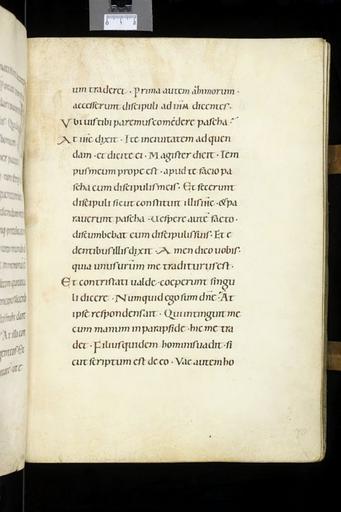 um traderet · Prima autem azimorum ·
accesserunt discipuli ad ihm dicentes ·
Vbi uis tibi paremus comedere pascha ·
At ihs dixit · Ite in ciuitatem ad quen
dam · et dicite ei · Magister dicit · Tem
pus meum prope est · apud te facio pa
scha cum discipulis meis · Et fecerunt
discipuli sicut constituit illis ihs · & pa
rauerunt pascha · Uespere aute facto ·
discumbebat cum discipulis suis · Et e
dentibus illis dixit · Amen dico uobis ·
quia unus urum me traditurus est ·
Et contristati ualde · coeperunt singu
li dicere · Numquid ego sum dne · At
ipse respondens ait · Qui intinguit me
cum manum in parapside · hic me tra
det · Filius quidem hominis uadit · si
cut scriptum est de eo · Vae autem ho